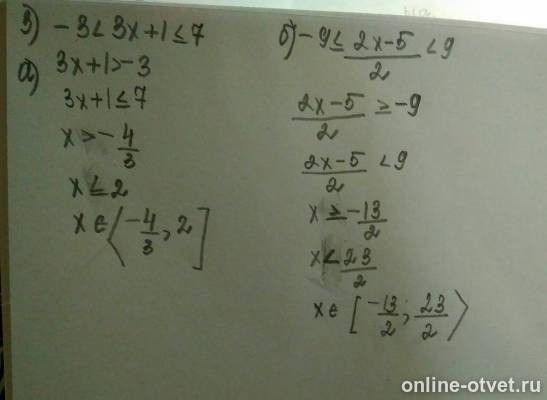 3) -3 < 3x+1 ≤ 7
а) 3x+1 > -3
3x+1 ≤ 7
x > -4/3
x ≤ 2
x ∈ (-4/3, 2]
б) -9 ≤ (2x-5)/2 < 9
(2x-5)/2 ≥ -9
(2x-5)/2 < 9
x ≥ -13/2
x < 23/2
x ∈ [-13/2; 23/2)
online-otvet.ru